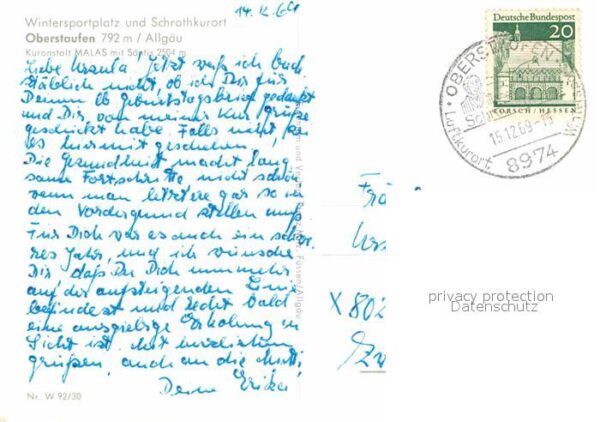 14.12.69
Wintersportplatz und Schrothkurort
Oberstaufen 792 m / Allgäu
Kuranstalt MALAS mit Säntis 2504 m
Liebe Ursula! Jetzt weiß ich buch
stäblich nicht, ob ich Dir für
Deinen lb Geburtstagsbrief gedankt
und Dir von meiner Kur Grüße
geschickt habe. Falls nicht,
es hiermit geschehen.
Die Gesundheit macht lang
same Fortschritte nicht schön
wenn man letztere gar so in
den Vordergrund stellen muß
Für Dich war es auch ein
res Jahr, und ich wünsche
Dir daß Du Dich nunmehr
auf der aufsteigenden Linie
befindest und recht bald
eine ausgiebige Erholung in
Sicht ist. Mit herzlichen
Grüßen, auch an die Mutti,
Deine Erika
Nr. W 92/30
Füssen/Allgäu
Deutsche Bundespost
20
LORSCH / HESSEN
OBERSTAUFEN
15.12.69
Luftkurort
8974
X 802
privacy protection
Datenschutz